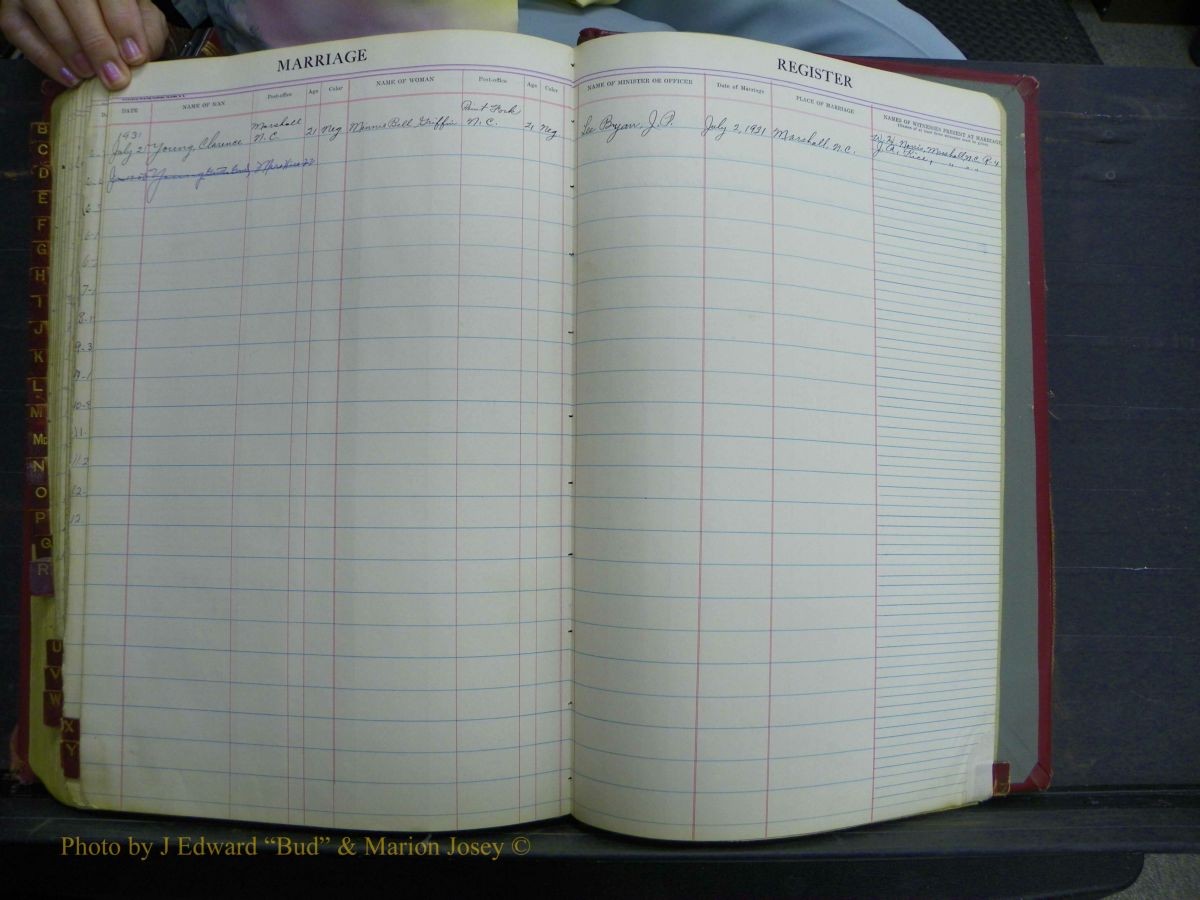 MARRIAGE
DATE NAME OF MAN Post-office Age Color NAME OF WOMAN Post-office Age Color
1931
July 2 Young, Clarence Marshall N.C. 21 Neg Minnie Bell Griffin N.C. 21 Neg
REGISTER
NAME OF MINISTER OR OFFICER Date of Marriage PLACE OF MARRIAGE NAMES OF WITNESSES PRESENT AT MARRIAGE
Bryan, J.P. July 2, 1931 Marshall, N.C. Norris, Marshall N.C. R-4
J. A. Rice, " " "
B
C
D
E
F
G
H
I
J
K
L
M
Mc
N
O
P
Q
R
U
V
W
X
Y
Photo by J Edward “Bud” & Marion Josey ©